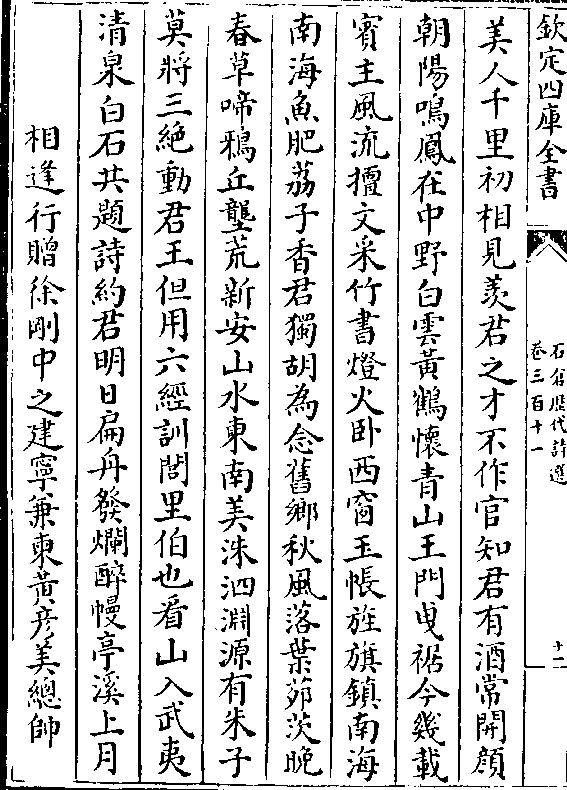 欽定四庫全書
石倉歷代詩選
卷三百十一
十二
美人千里初相見羨君之才不作官知君有酒常開顔
朝陽鳴鳳在中野白雲黃鶴懷青山王門曵裾今幾載
賓主風流擅文采竹書燈火卧西窗玉帳旌旗鎮南海
南海魚肥荔子香君獨胡為念舊鄉秋風落葉茆茨晚
春草啼鴉丘壟荒新安山水東南美洙泗淵源有朱子
莫將三絶動君王但用六經訓閭里伯也看山入武夷
清泉白石共題詩約君明日扁舟發爛醉幔亭溪上月
相逢行贈徐剛中之建寧兼柬黃彦美總帥